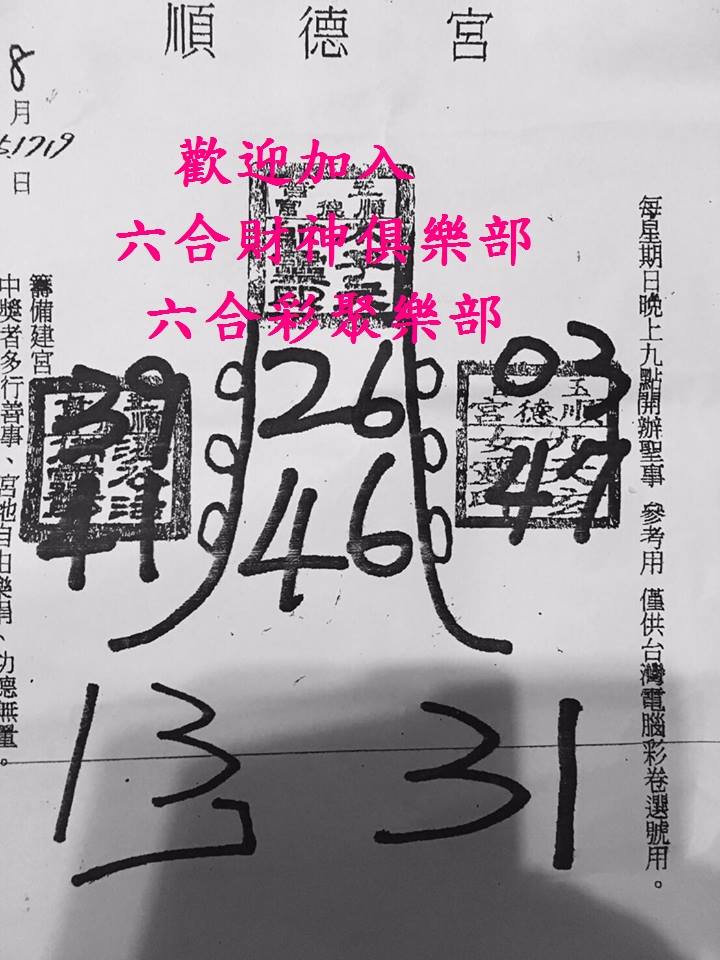 順德宮
8
月
日
歡迎加入
六合財神俱樂部
六合彩聚樂部
每星期日晚上九點開辦聖事 參考用 僅供台灣電腦彩卷選號用。
籌備建宮
中獎者多行善事、宮地自由樂捐、功德無量。
39 26 03
41 46 47
13 31